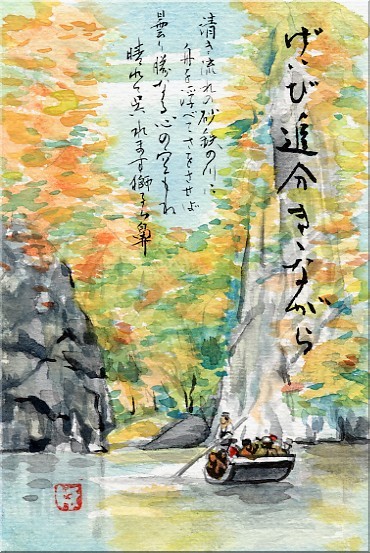 げいび追分きゝながら
清き流れの砂鉄の川に
舟を浮べてさをさせば
曇り勝なる心の空もね
晴れて呉れます獅子ヶ鼻